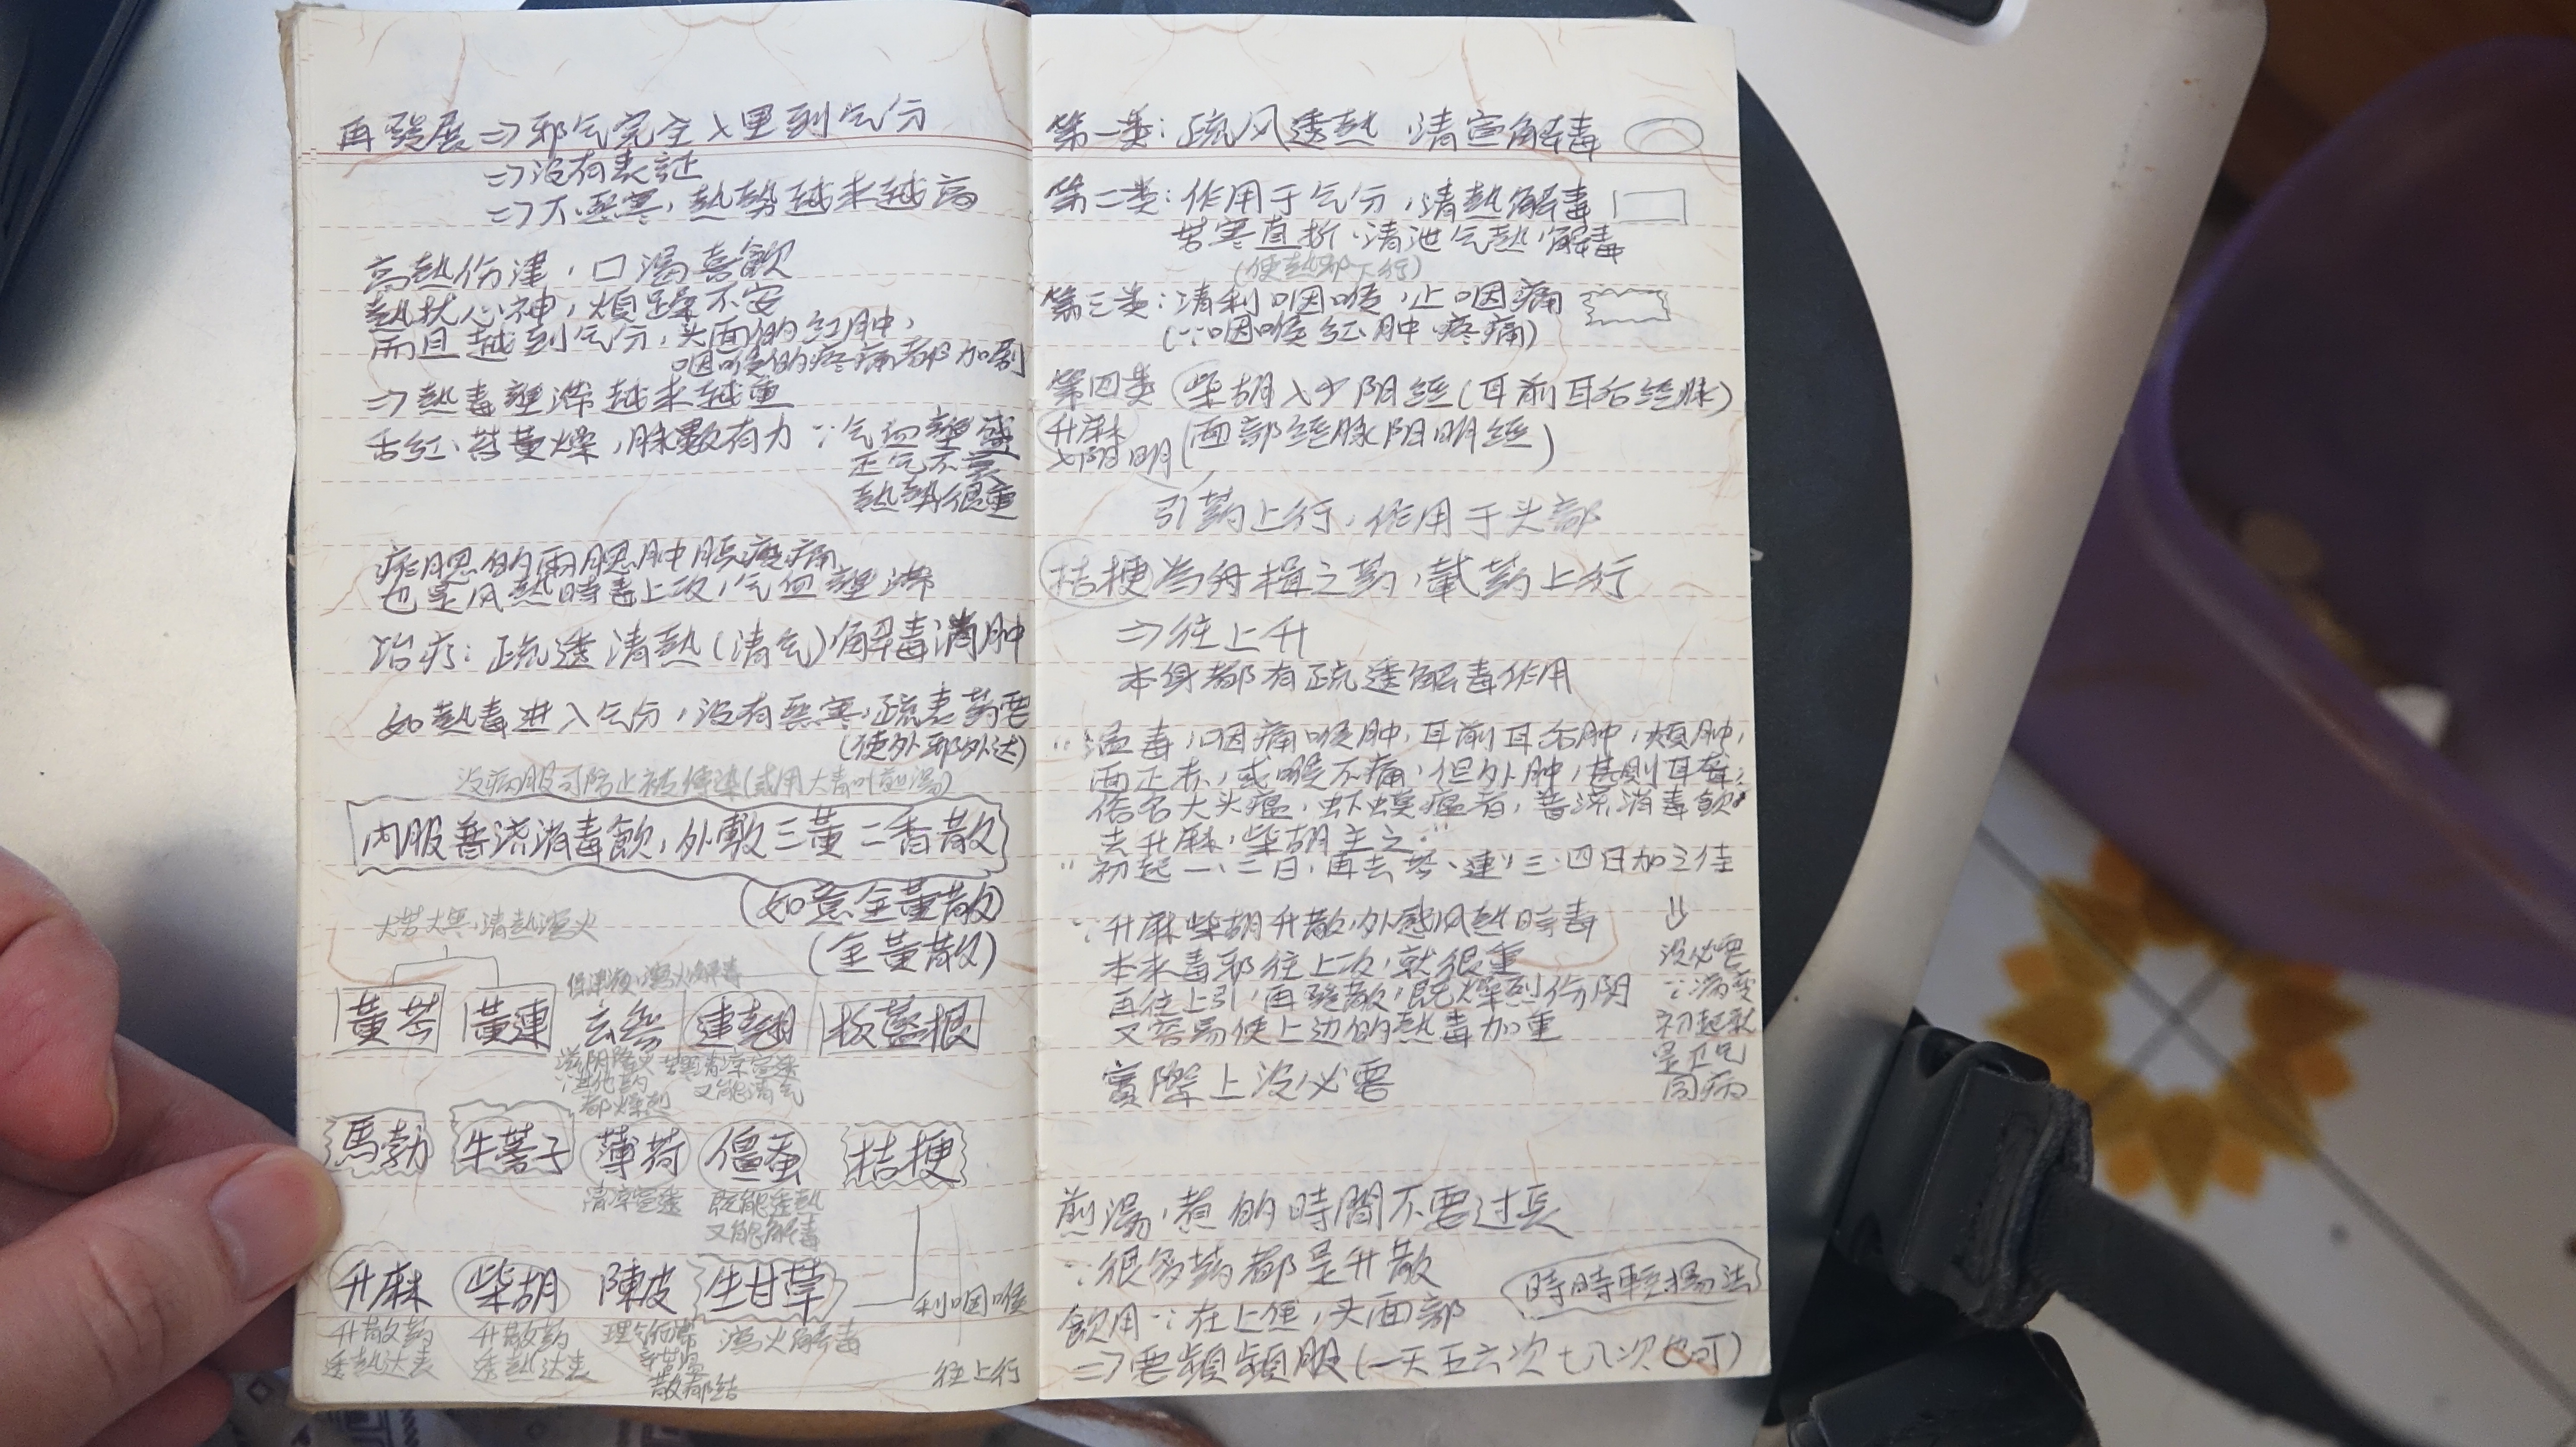 再發展⇒邪气完全入里到气分
⇒没有表証
⇒不惡寒,熱勢越来越高
高熱伤津,口渴喜飲
熱扰心神,煩躁不安
而且越到气分,头面的红肿,
咽喉的疼痛都加剧
⇒熱毒壅滞越来越重
舌红、苔黃燥,脉數有力 ∵气血壅盛
正气不衰
熱勢很重
痄腮的兩腮肿脹痠痛
也是风熱時毒上攻,气血壅滞
治疗:疏透清熱(清气)解毒消肿
如熱毒进入气分,没有惡寒,疏表药要
(使外邪外达)
没病服可防止被傳染(或用大青叶煎湯)
内服普济消毒飲,外敷三黃二香散
(如意金黃散)
(金黃散)
大苦大寒,清熱瀉火
保津液,瀉火解毒
黃芩 黃連 玄參 連翹 板藍根
滋阴降火
∵其他药
都燥烈
苦寒清凉宣透
又能清气
馬勃 牛蒡子 薄荷 僵蚕 桔梗
清凉宣透 既能透熱
又能解毒
升麻 柴胡 陳皮 生甘草 利咽喉
升散药 升散药 瀉火解毒
透熱达表 透熱达表
散郁结 往上行
第一类:疏风透熱 清宣解毒
第二类:作用于气分,清熱解毒
苦寒直折,清泄气熱,解毒
(使熱邪下行)
第三类:清利咽喉,止咽痛
(∵咽喉红肿疼痛)
第四类 柴胡入少阳經(耳前耳后经脉)
升麻
入阳明(面部經脉阳明經)
引药上行,作用于头部
桔梗為舟楫之药,載药上行
⇒往上升
本身都有疏透解毒作用
“温毒,咽痛喉肿,耳前耳后肿,頰肿,
面正赤,或喉不痛,但外肿,甚則耳聋;
俗名大头瘟,虾蟆瘟者,普济消毒飲
去升麻,柴胡主之.”
“初起一、二日,再去芩、連,三、四日加之佳
∵升麻柴胡升散,外感风熱時毒
本来毒邪往上攻,就很重
再往上引,再發散,既燥烈伤阴
又容易使上边的熱毒加重
實際上没必要
⇓
没必要
∵病变
初起就
是卫气
同病
煎湯,煮的時間不要过長
∵很多药都是升散
時時輕揚法
飲用∵在上焦,头面部
⇒要頻頻服(一天五六次七八次也可)